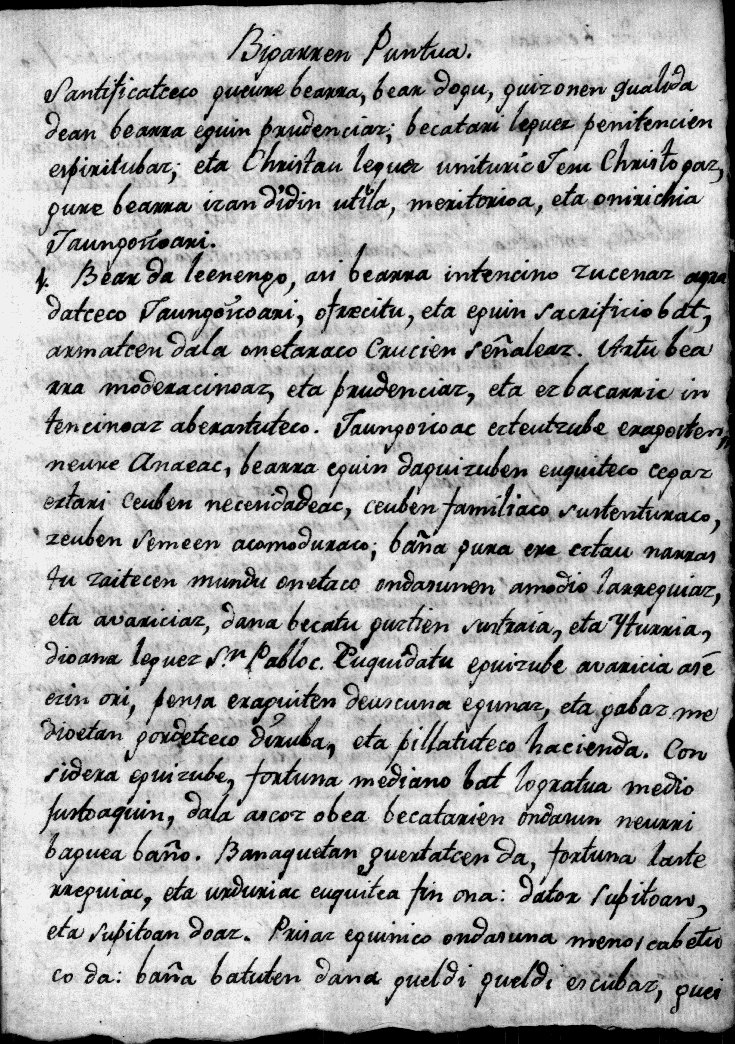 Bigarren Puntua.
Santificatceco gueure bearra, bear dogu, guizonen gualida
dean bearra eguin prudenciaz; becatari leguez penitencien
espiritubaz; eta Christau leguez unituric Jesu Christogaz,
gure bearra izan didin utila, meritorioa, eta onirichia
Jaungoicoari.
1. Bear da leenengo, asi bearra intencino zucenaz agra
datceco Jaungoicoari, ofrecitu, eta eguin sacrificio bat,
armatcen dala onetaraco Crucien señaleaz. Artu bea
rra moderacinoaz, eta prudenciaz, eta ez bacarric in
tencinoaz aberastuteco. Jaungoicoac ezteutzube eragosten,
neure Anaeac, bearra eguin daguizuben euquiteco cegaz
eztari ceuben necesidadeac, ceuben familiaco sustenturaco,
zeuben semeen acomoduraco; baña gura ere eztau narras
tu zaitecen mundu onetaco ondasunen amodio larreguiaz,
eta avariciaz, dana becatu guztien sustraia, eta Yturria,
dioana leguez Sn Pabloc. Euquidatu eguizube avaricia asé
ezin ori, pensa eraguiten deuscuna egunaz, eta gabaz me
dioetan gordetceco diruba, eta pillatuteco hacienda. Con
sidera eguizube, fortuna mediano bat logratua medio
justoaquin, dala ascoz obea becatarien ondasun neurri
baguea baño. Banaquetan guertatcen da, fortuna laste
rreguiac, eta urduriac euquitea fin ona: dator supitoan,
eta supitoan doaz. Prisaz eguinico ondasuna menoscabetu
co da: baña batuten dana gueldi gueldi escubaz, guei